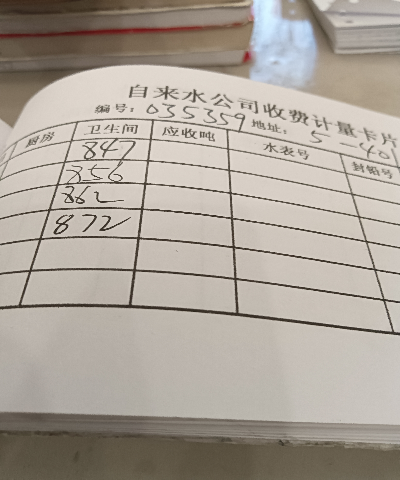 自来水公司收费计量卡片
编号：035359 地址：5-401
厨房 卫生间 应收吨 水表号 封铅号
847
856
862
872